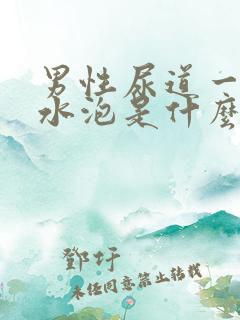 男性尿道一
水泡是什麼
鄧圩
未经同意禁止转载